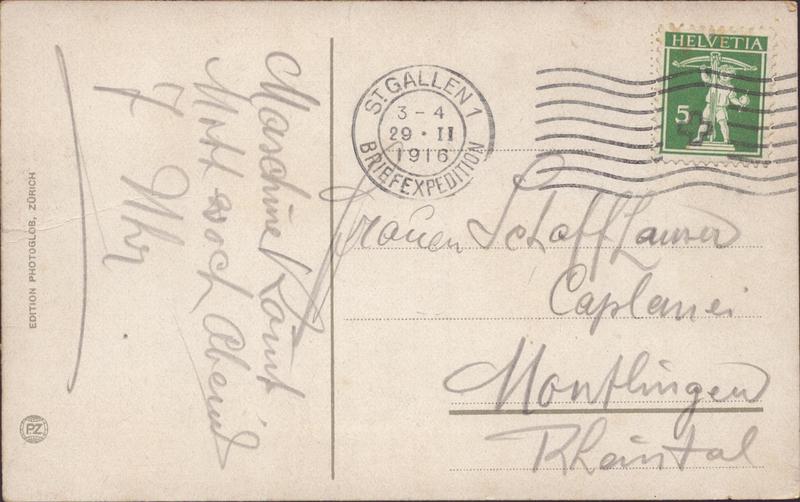 Maschine kommt
Mittwoch Abend
7 Uhr
EDITION PHOTOGLOB, ZÜRICH
PZ
ST GALLEN 1
3-4
29·II
1916
BRIEFEXPEDITION
HELVETIA
5
Frauen Schaffhauser
Caplanei
Montlingen
Rheintal